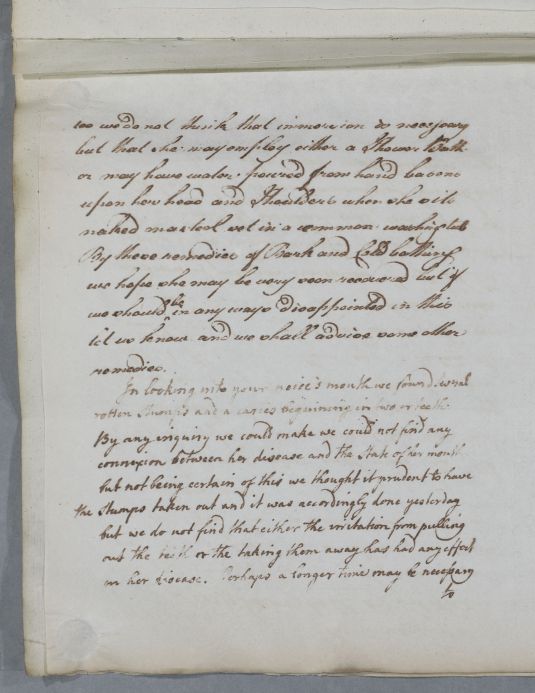 too we do not think that immersion is necessary
but that she may employ either a Shower Bath
or may have water poured from hand basons
upon her head and Shoulders when she sits
naked on a stool set in a common washing tub
By these remedies of Bark and Cold bathing
we hope she may be very soon recovered but if
we should be in any ways disappointed in this
let us know and we shall advise some other
remedies.
In looking into your neice's mouth we found several
rotten Stumps and a caries beginning in two or teeth
By any inquiry we could make we could not find any
connexion between her disease and the state of her mouth
but not being certain of this we thought it prudent to have
the Stumps taken out and it was accordingly done yesterday
but we do not find that either the irritation from pulling
out the teeth or the taking them away has had any effect
on her disease. Perhaps a longer time may be necessary
to